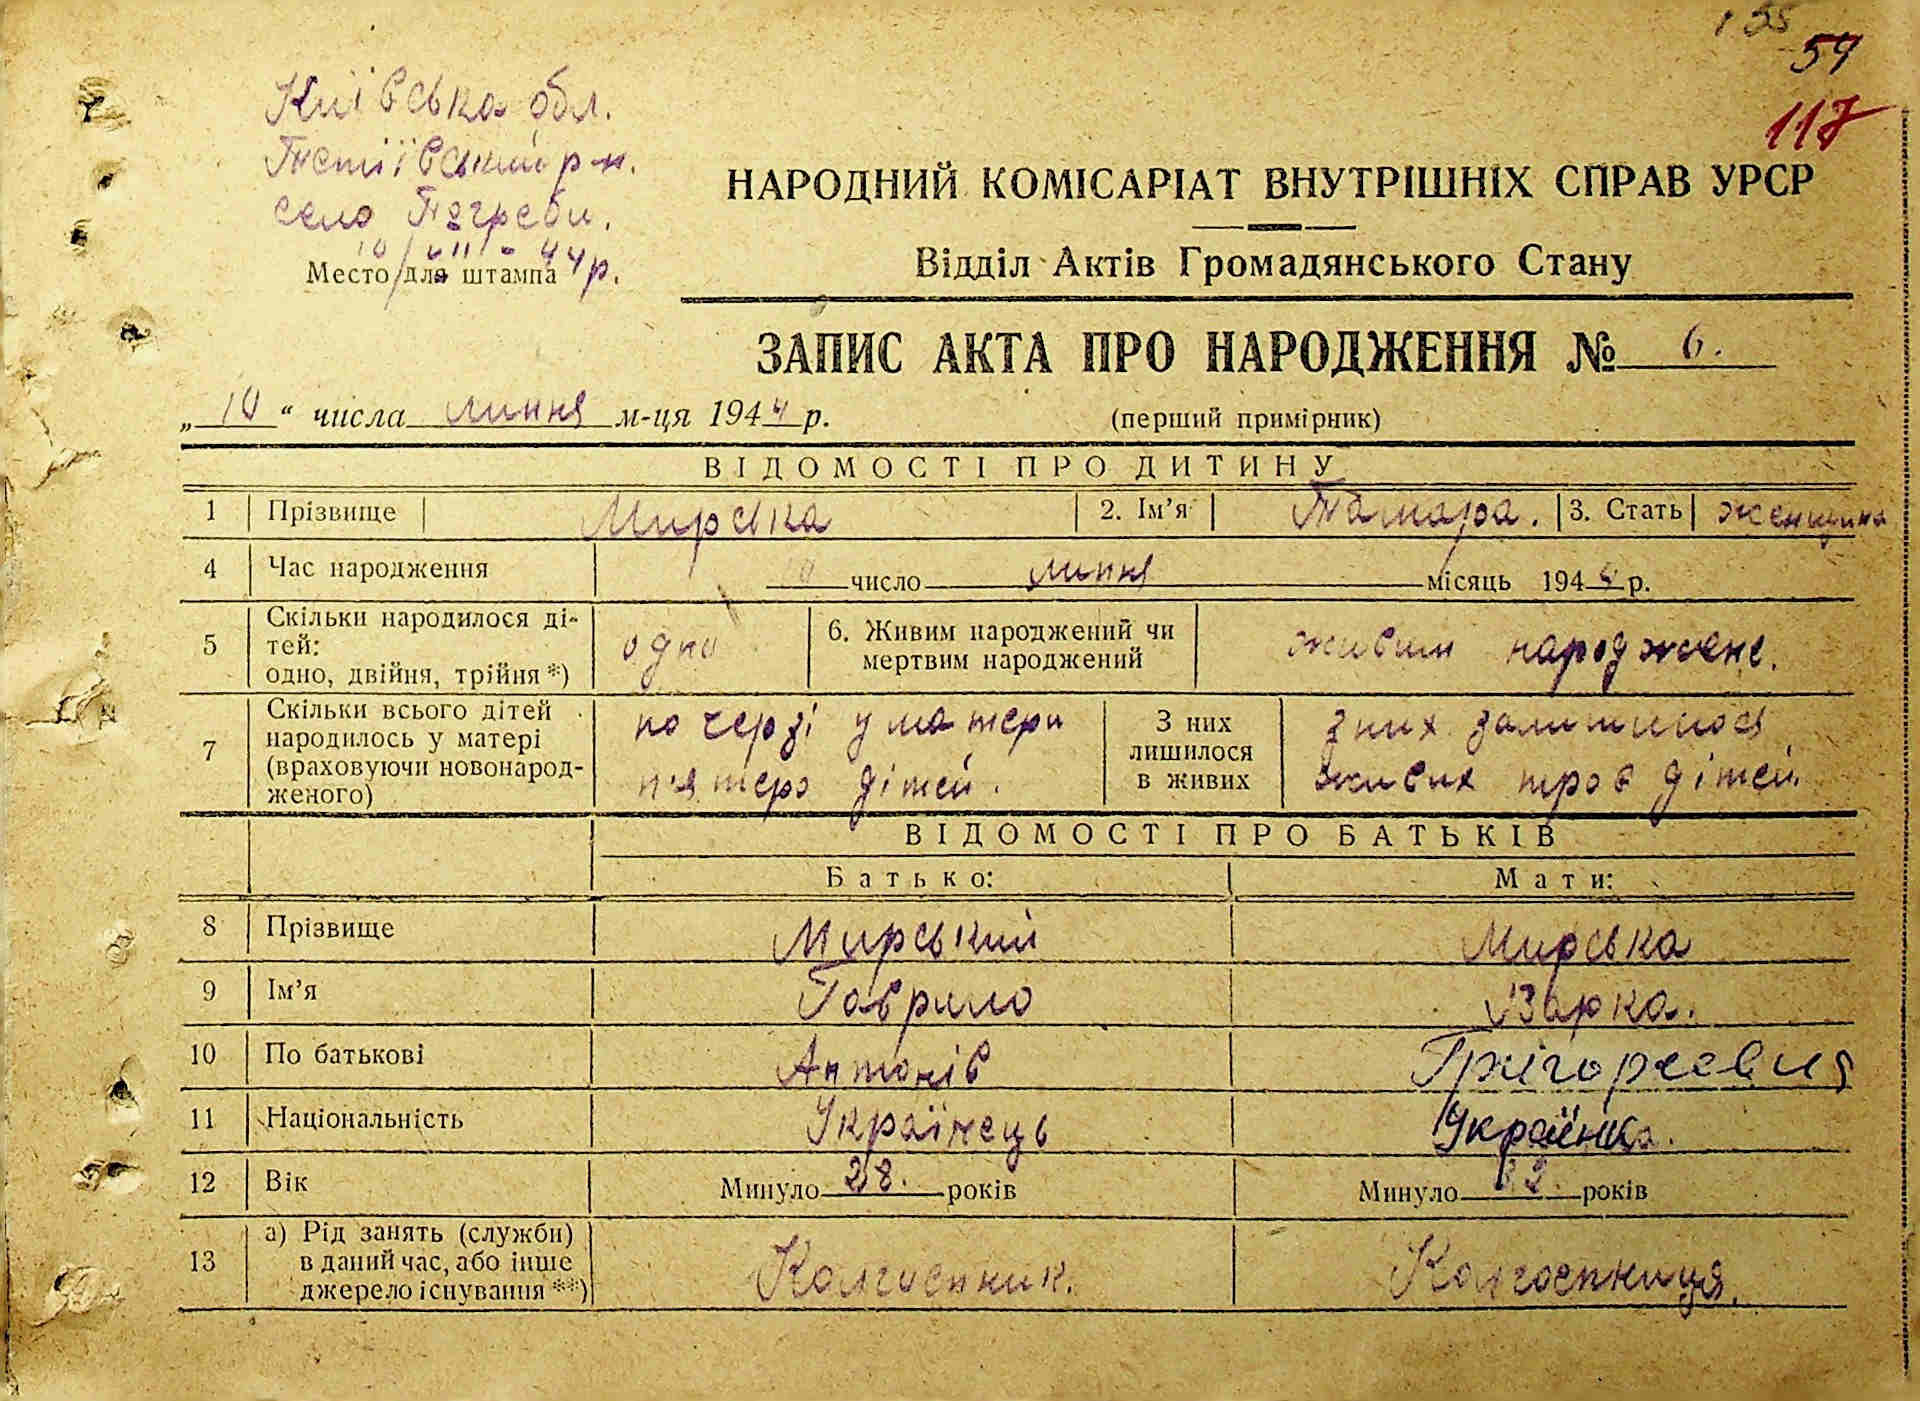 59
117
Київська обл.
Тетіївський р-н.
село Погреби.
10/VII - 44 р.
Место для штампа
НАРОДНИЙ КОМІСАРІАТ ВНУТРІШНІХ СПРАВ УРСР
Відділ Актів Громадянського Стану
ЗАПИС АКТА ПРО НАРОДЖЕННЯ № 6.
„ 10 “ числа липня м-ця 1944 р. (перший примірник)
ВІДОМОСТІ ПРО ДИТИНУ
1 Прізвище Мирська 2. Ім’я Тамара. 3. Стать женщина
4 Час народження 10 число липня місяць 1944 р.
5 Скільки народилося ді-
тей:
одно, двійня, трійня *) одно 6. Живим народжений чи
мертвим народжений живим народжене.
7 Скільки всього дітей
народилось у матері
(враховуючи новонарод-
женого) по черзі у матери
п'ятеро дітей. З них
лишилося
в живих з них залишилося
живих троє дітей.
ВІДОМОСТІ ПРО БАТЬКІВ
Батько: Мати:
8 Прізвище Мирський Мирська
9 Ім’я Гаврило Варка.
10 По батькові Антонів Григорьевна
11 Національність Українець Українка.
12 Вік Минуло 28. років Минуло 32. років
13 а) Рід занять (служби)
в даний час, або інше
джерело існування **) Колгоспник. Колгоспниця.